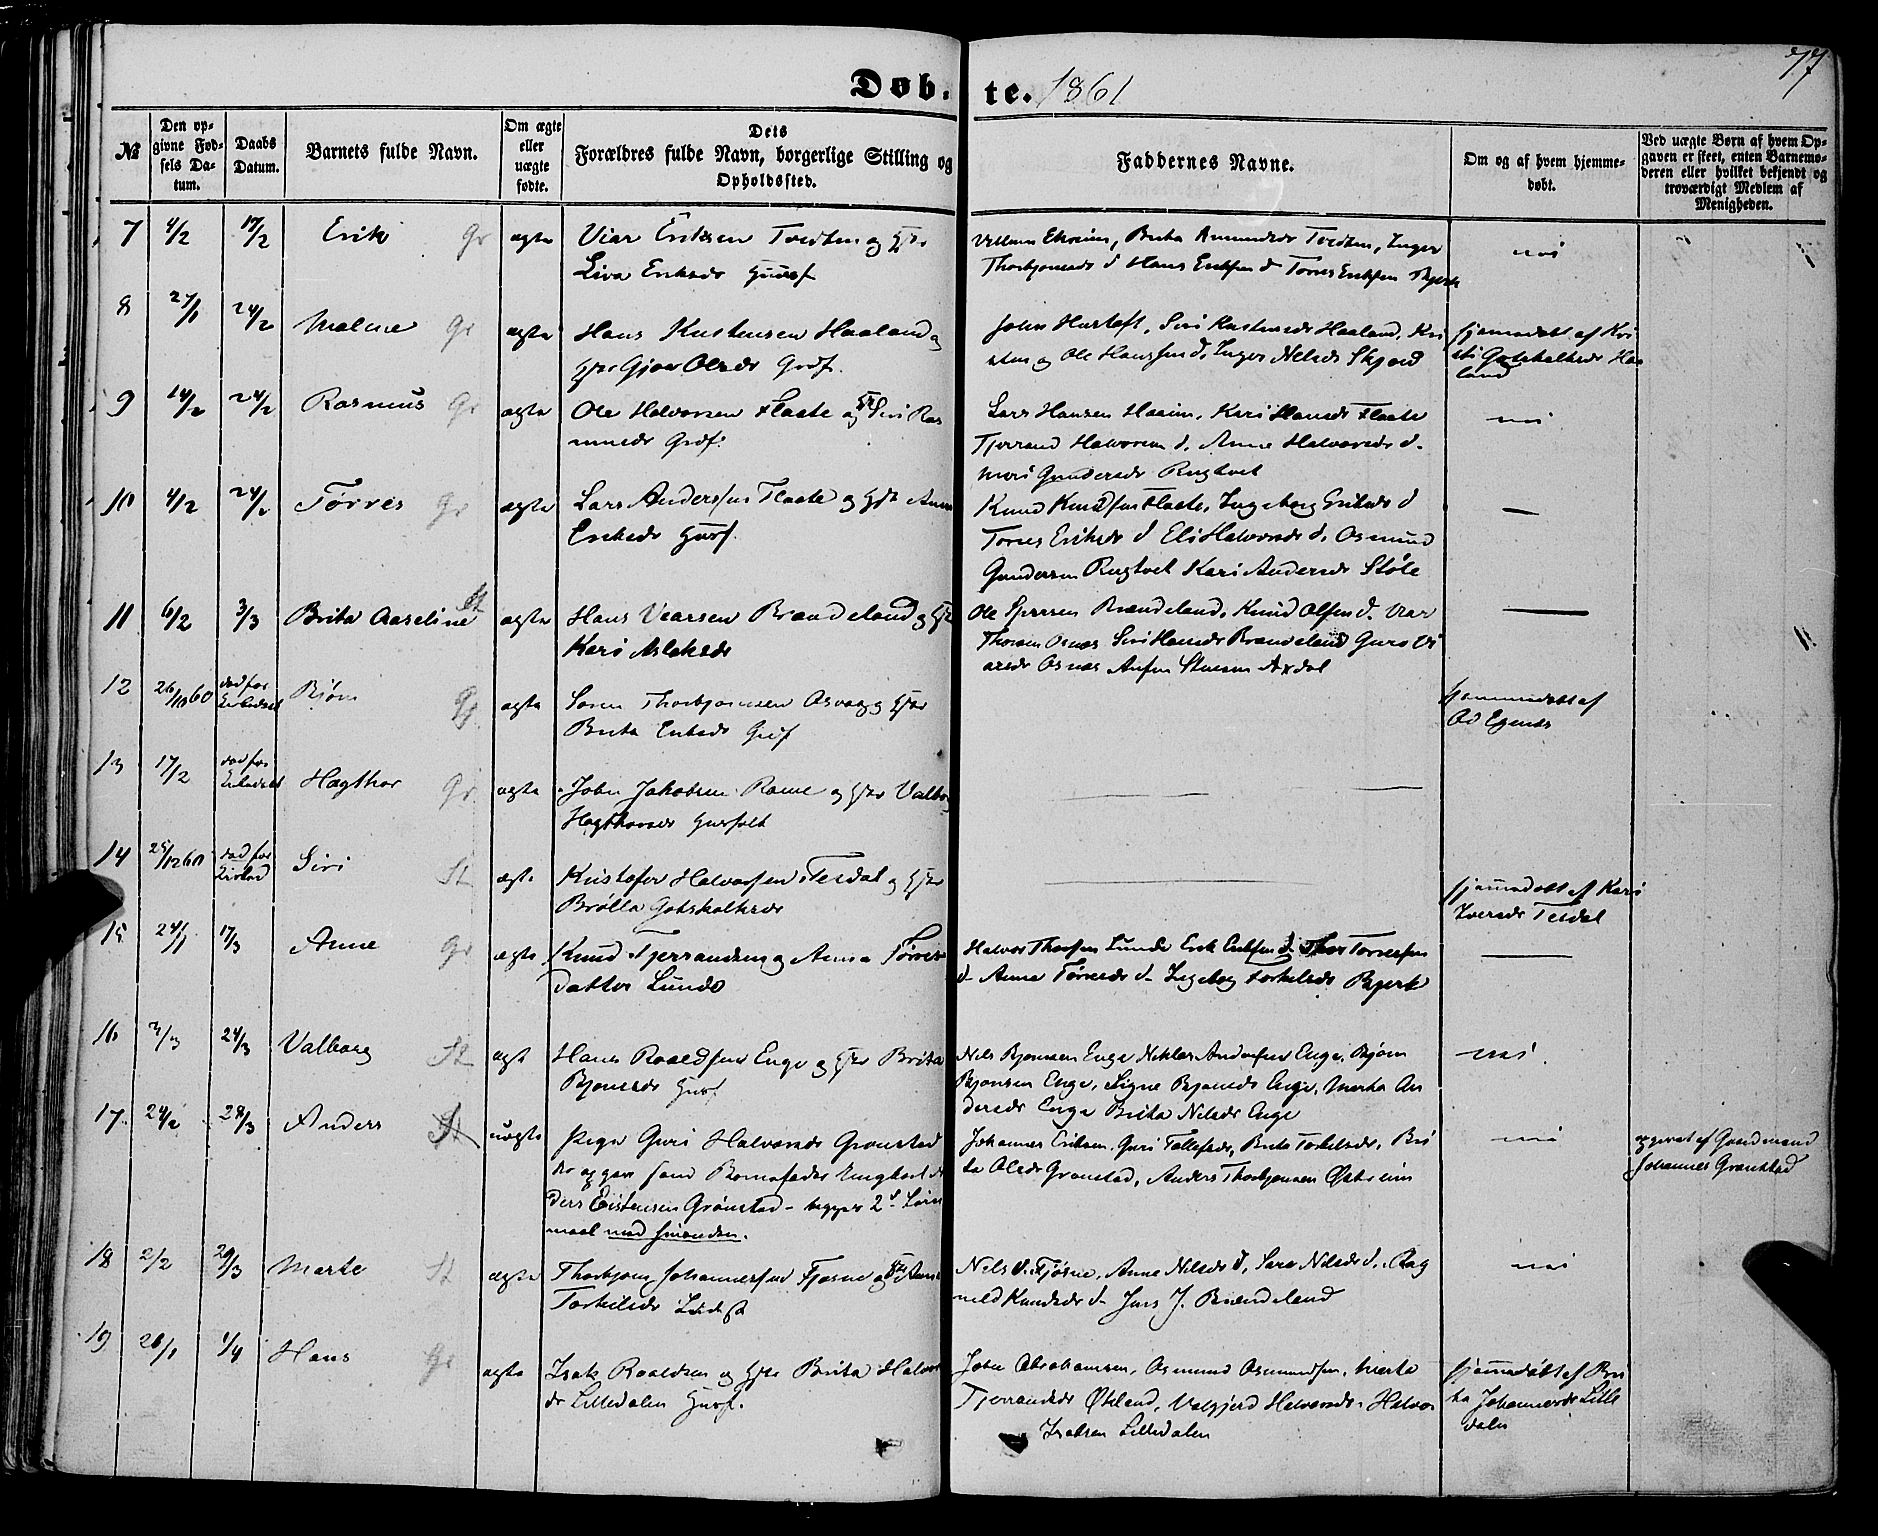 77
Døb. te. 1861
№
Den op-
givne Fød-
sels Da-
tum.
Daabs
Datum.
Barnets fulde Navn.
Om ægte
eller
uægte
fødte.
Dets
Forældres fulde Navn, borgerlige Stilling og
Opholdssted.
Faddernes Navne.
Om og af hvem hjemme-
døbt.
Ved uægte Børn af hvem Op-
gaven er skeet, enten Barnemo-
deren eller hvilket bekjendt og
troværdigt Medlem af
Menigheden.
7 4/2 17/2 Erik Gr ægte Viar Eriksen Tvedten og Hstr
Siva Eriksdr
Villum Ekreim, Brita Amundsdr Tvedten, Inger
Thorbjørnsdr d Hans Eriksen d Torres Eriksen Bjerk
nei
8 27/1 24/2 Malene Gr ægte Hans Kristensen Haaland og
Hstr Gjøa Olsdr
John Hustoft, Siri Rasmusdr Haaland, Kri
sten og Ole Hanssen d, Inger Nelsdr Skjold
hjemmedøbt af Kri
sti Gotskalksdr Haa
land
9 14/2 24/2 Rasmus Gr ægte Ole Halvorsen Flaate og Hstr Siri Ras
musdr
Lars Hansen Haaim, Kari Hansdr Flaate
Tjerrand Halvorsen d, Anne Halvorsdr d.
Gundersdr Rugtvet
nei
10 4/2 24/2 Tørres Gr ægte Lars Anderssen Flaate og Hstr Anne
Eriksdr
Knud Knudssen Flaate, Ingeborg Eriksdr d
Torres Eriksdr d Eli Halvorsdr d. Osmund
Gundersen Rugtvet Kari Andersdr Støle
—
11 6/2 3/3 Brita Aaseline St ægte Hans Vearsen Brændeland og Hstr
Kari Aslaksdr
Ole Brændeland, Knud Olsen d. Viar
Osnes Siri Hansdr Brændeland Guro Vi
arsdr Osnes
—
12 26/10 60 død før
Bjørn ægte Soren Thorbjørnsen Osvaag og Hstr
Brita Eriksdr
hjemmedøbt af
Egenes
13 17/2 død før
Hægthor Gr ægte John Jakobsen og Hstr Valbor
Hægthorsdr
— — —
14 25/12 60 død før
Siri St ægte Kristofer Halvorsen Tesdal og Hstr
Brølla Gotskalksdr
—
hjemmedøbt af Kari
Iversdr Tesdal
15 24/1 17/3 Anne Gr ægte Knud Tjerrandsen og Anna Tørres
datter Lunde
Halvor Thorsen Lunde Erik Eriksen d. Thor Torressen
d. Anna Tørresdr d. Ingeborg Torkelsdr Bjerk
—
16 3/3 24/3 Valborg St ægt Hans Roaldsen Enge og Hstr Brita
Bjønesdr
Nels Bjønsen Enge Niklas Andersen Enge, Bjørn
Bjønsen Enge, Signe Bjønesdr Enge, Marta An
dersdr Enge Brita Nelsdr Enge
nei.
17 24/2 28/3 Anders uægte Pige Guri Halvorsdr Grønstad
der opgav som Barnefader Ungkarl An
ders Eistensen Grønstad - begges 2d Leier
maal med hinanden.
Johannes Eriksen, Guri Tollefsdr, Brita Torkelsdr, Bri
ta Olsdr Grønstad, Anders Thorbjønsen Østreim
nei
opgivet af Gaardmand
Johannes Grønstad
18 2/2 29/3 Marte St ægte Thorbjønn Johannessen Fjøsne og Hstr Anne
Torkelsdr
Nels d. Fjøsne, Anne Nelsdr d, Sara Nelsdr d. Rag
nild Knudsdr d. Jens J. Brændeland
nei
19 28/1 1/4 Hans Gr ægte Isak Roaldsen og Hstr Brita Halvors
dr Lilledalen
John Abrahamsen, Osmund Osmundsen, Marta
Tjerrandsdr Økland, Valgjerd Halvorsdr, Halvor
Isaksen Lilledalen
hjemmedøbt af Bri
ta Johannesdr Lille
dalen